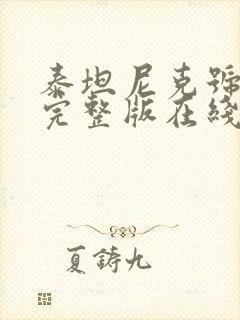 泰坦尼克號
完整版在綫
夏鑄九